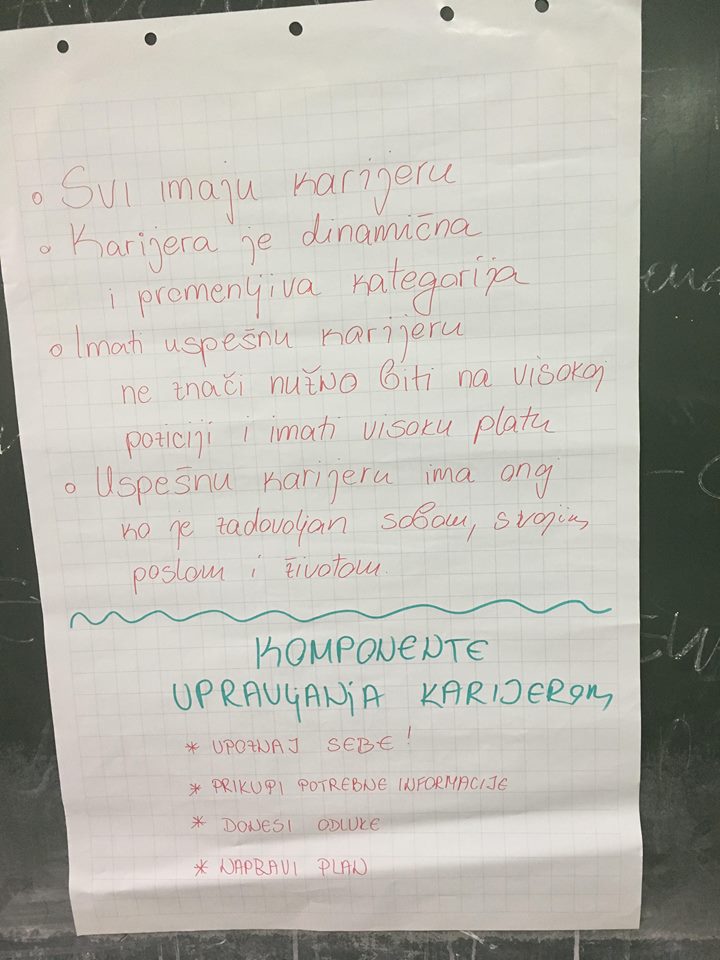 ° Svi imaju karijeru
° Karijera je dinamična
i promenljiva kategorija
° Imati uspešnu karijeru
ne znači nužno biti na visokoj
poziciji i imati visoku platu
° Uspešnu karijeru ima onaj
ko je zadovoljan sobom, svojim
poslom i životom.
KOMPONENTE
UPRAVLJANJA KARIJEROM
* UPOZNAJ SEBE!
* PRIKUPI POTREBNE INFORMACIJE
* DONESI ODLUKE
* NAPRAVI PLAN